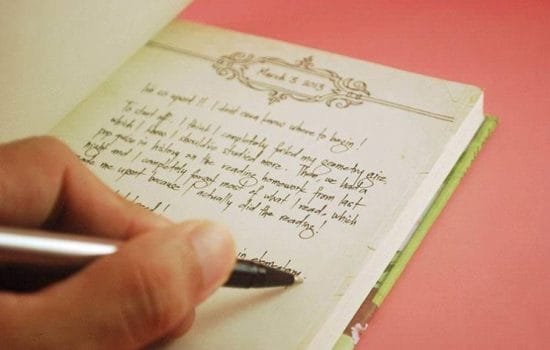 March 3, 2013
I'm so upset!! I don't even know where to begin!
To start off, I think I completely failed my geometry quiz,
which I know I should've studied more. Then we had a
pop quiz in history on the reading homework from last
night and I completely forgot most of what I read, which
made me upset because I actually did the reading!
in elementary